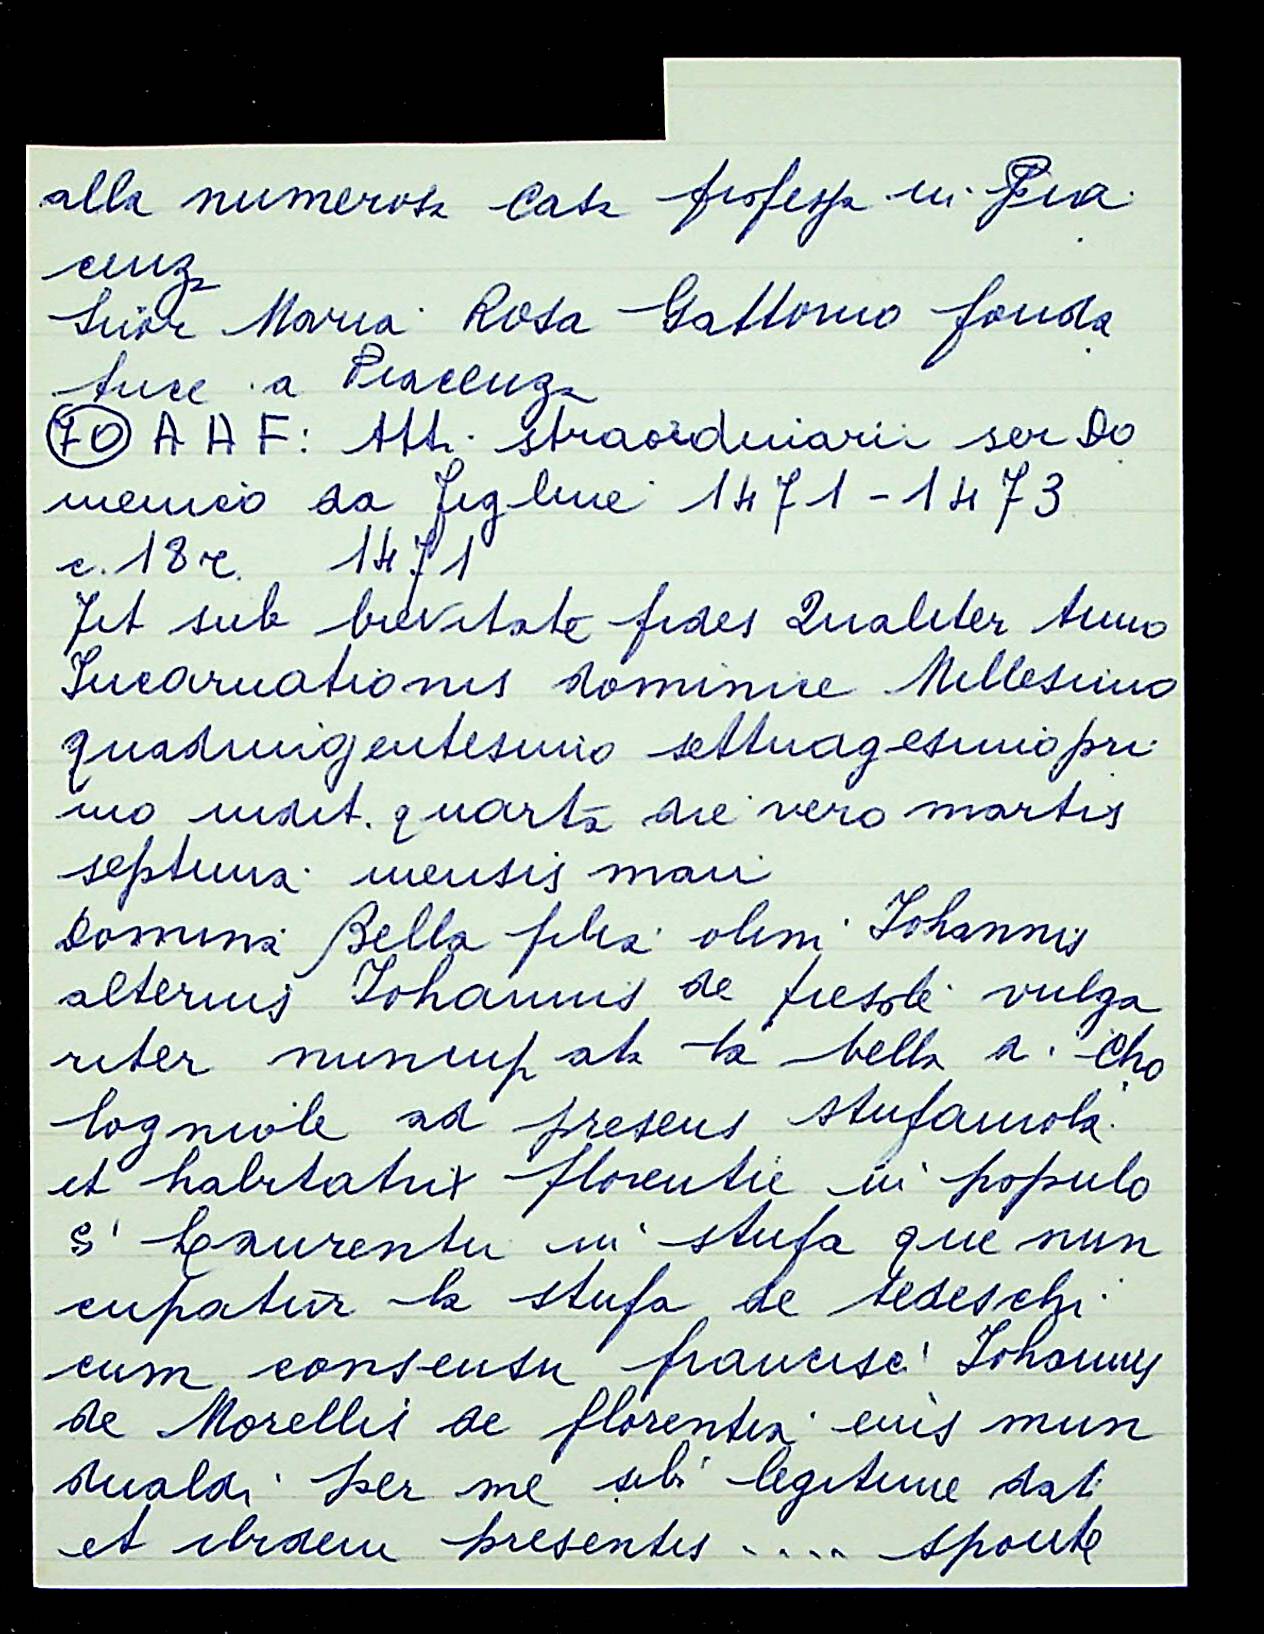 alla numerosa casa professa in Pia
cenza
Suor Maria Rosa Gattorno fonda
trice a Piacenza
70 A A F: Atti straordinarii ser Do
menico da Figline 1471-1473
c. 18 r. 1471
Fit sub brevitate fides Qualiter Anno
Incarnationis dominice Millesimo
quadringentesimo settuagesimopri
mo indit. quarta die vero martis
septima mensis maii
Domina Bella filia olim Iohannis
alterius Iohannis de fiesole vulga
riter nuncupata la bella a. Cho
logniole ad presens stufaiuola
et habitatrix florentie in populo
S' Laurentii in stufa que nun
cupatur la stufa de tedeschi
cum consensu francisci Iohannis
de Morellis de florentia eius mun
dualdi per me sibi legitime dati
et ibidem presentis .... sponte